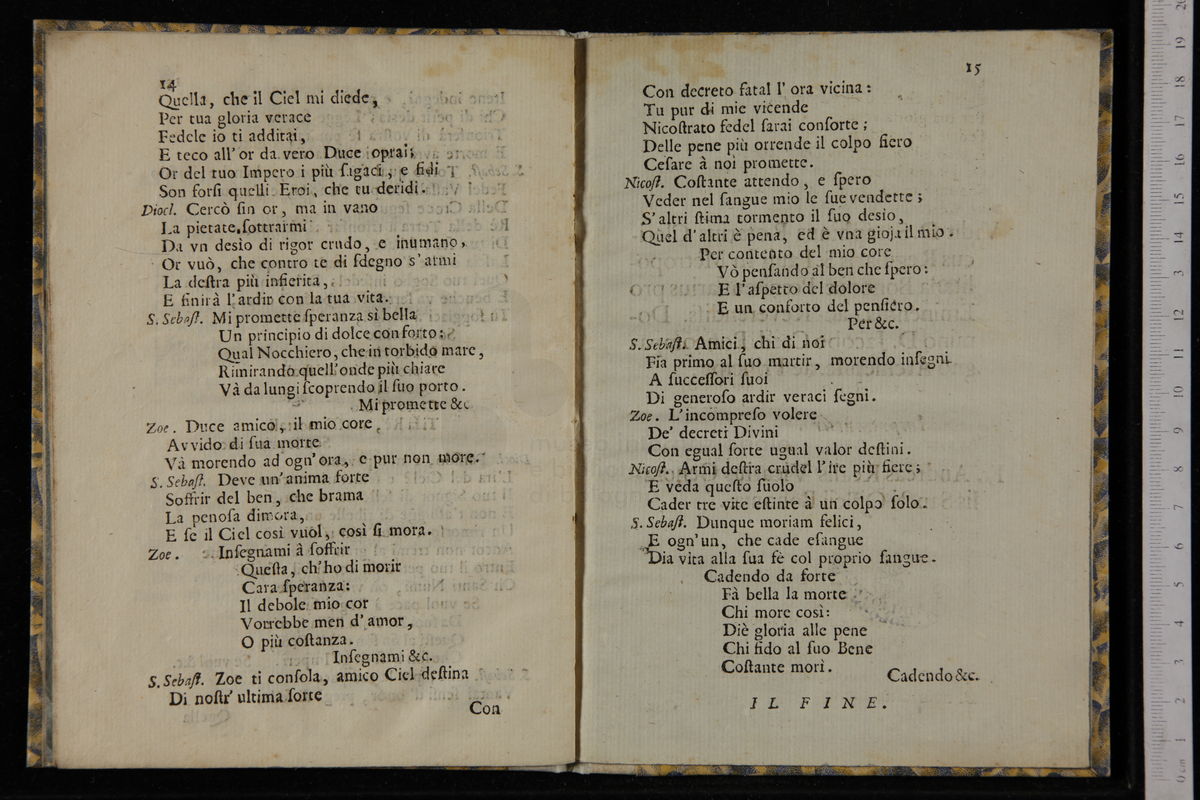 14
Quella, che il Ciel mi diede,
Per tua gloria verace
Fedele io ti additai,
E teco all'or da vero Duce oprai;
Or del tuo Impero i più ſagaci, e fidi
Son forſi quelli Eroi, che tu deridi.
Diocl. Cercò ſin or, ma in vano
La pietate ſottrarmi
Da vn desìo di rigor crudo, e inumano,
Or vuò, che contro te di ſdegno s'armi
La deſtra più inſierita,
E finirà l'ardir con la tua vita.
S. Sebaſt. Mi promette ſperanza sì bella
Un principio di dolce conforto:
Qual Nocchiero, che in torbido mare,
Rimirando quell'onde più chiare
Và da lungi ſcoprendo il ſuo porto.
Mi promette &c
Zoe. Duce amico, il mio core
Avvido di ſua morte
Và morendo ad ogn'ora, e pur non more.
S. Sebaſt. Deve un'anima forte
Soffrir del ben, che brama
La penoſa dimora,
E ſe il Ciel così vuol, così ſi mora.
Zoe. Inſegnami à ſoffrir
Queſta, ch'ho di morir
Cara ſperanza:
Il debole mio cor
Vorrebbe men d'amor,
O più coſtanza.
Inſegnami &c.
S. Sebaſt. Zoe ti conſola, amico Ciel deſtina
Di noſtr' ultima ſorte
Con
15
Con decreto fatal l' ora vicina:
Tu pur di mie vicende
Nicoſtrato fedel ſarai conſorte;
Delle pene più orrende il colpo fiero
Ceſare à noi promette.
Nicoſt. Coſtante attendo, e ſpero
Veder nel ſangue mio le ſue vendette;
S'altri ſtima tormento il ſuo desìo,
Quel d'altri è pena, ed è vna gioja il mio.
Per contento del mio core
Vò penſando al ben che ſpero:
E l'aſpetto del dolore
E un conforto del penſiero.
Per &c.
S. Sebaſt. Amici, chi di noi
Fia primo al ſuo martir, morendo inſegni
A ſucceſſori ſuoi
Di generoſo ardir veraci ſegni.
Zoe. L'incompreſo volere
De' decreti Divini
Con egual ſorte ugual valor deſtini.
Nicoſt. Armi deſtra crudel l'ire più fiere;
E veda queſto ſuolo
Cader tre vite eſtinte à un colpo ſolo.
S. Sebaſt. Dunque moriam felici,
E ogn'un, che cade eſangue
Dia vita alla ſua fè col proprio ſangue.
Cadendo da forte
Fà bella la morte
Chi more così:
Diè gloria alle pene
Chi fido al ſuo Bene
Coſtante morì.
Cadendo &c.
IL FINE.